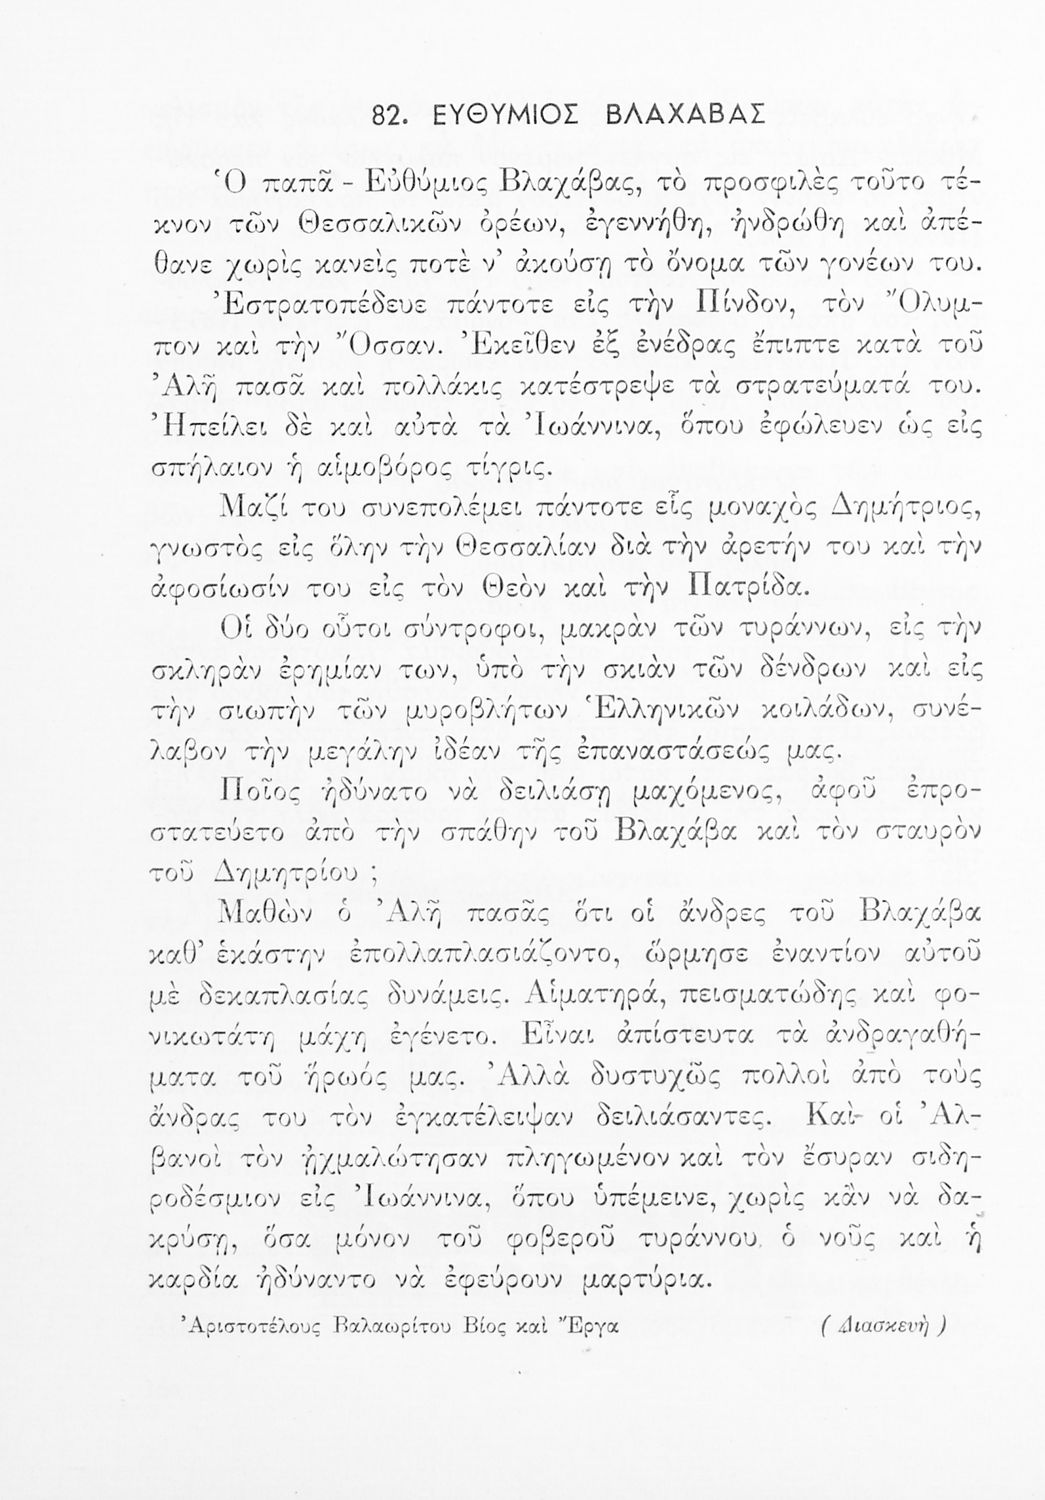 82. ΕΥΘΥΜΙΟΣ ΒΛΑΧΑΒΑΣ
Ὁ παπᾶ - Εὐθύμιος Βλαχάβας, τὸ προσφιλὲς τοῦτο τέ-
κνον τῶν Θεσσαλικῶν ὀρέων, ἐγεννήθη, ἠνδρώθη καὶ ἀπέ-
θανε χωρὶς κανεὶς ποτὲ ν’ ἀκούσῃ τὸ ὄνομα τῶν γονέων του.
Ἐστρατοπέδευε πάντοτε εἰς τὴν Πίνδον, τὸν Ὄλυμ-
πον καὶ τὴν Ὄσσαν. Ἐκεῖθεν ἐξ ἐνέδρας ἔπιπτε κατὰ τοῦ
Ἀλῆ πασᾶ καὶ πολλάκις κατέστρεψε τὰ στρατεύματά του.
Ἠπείλει δὲ καὶ αὐτὰ τὰ Ἰωάννινα, ὅπου ἐφώλευεν ὡς εἰς
σπήλαιον ἡ αἱμοβόρος τίγρις.
Μαζί του συνεπολέμει πάντοτε εἷς μοναχὸς Δημήτριος,
γνωστὸς εἰς ὅλην τὴν Θεσσαλίαν διὰ τὴν ἀρετήν του καὶ τὴν
ἀφοσίωσίν του εἰς τὸν Θεὸν καὶ τὴν Πατρίδα.
Οἱ δύο οὗτοι σύντροφοι, μακρὰν τῶν τυράννων, εἰς τὴν
σκληρὰν ἐρημίαν των, ὑπὸ τὴν σκιὰν τῶν δένδρων καὶ εἰς
τὴν σιωπὴν τῶν μυροβλήτων Ἑλληνικῶν κοιλάδων, συνέ-
λαβον τὴν μεγάλην ἰδέαν τῆς ἐπαναστάσεώς μας.
Ποῖος ἠδύνατο νὰ δειλιάσῃ μαχόμενος, ἀφοῦ ἐπρο-
στατεύετο ἀπὸ τὴν σπάθην τοῦ Βλαχάβα καὶ τὸν σταυρὸν
τοῦ Δημητρίου ;
Μαθὼν ὁ Ἀλῆ πασᾶς ὅτι οἱ ἄνδρες τοῦ Βλαχάβα
καθ’ ἑκάστην ἐπολλαπλασιάζοντο, ὥρμησε ἐναντίον αὐτοῦ
μὲ δεκαπλασίας δυνάμεις. Αἱματηρά, πεισματώδης καὶ φο-
νικωτάτη μάχη ἐγένετο. Εἶναι ἀπίστευτα τὰ ἀνδραγαθή-
ματα τοῦ ἥρωός μας. Ἀλλὰ δυστυχῶς πολλοὶ ἀπὸ τοὺς
ἄνδρας του τὸν ἐγκατέλειψαν δειλιάσαντες. Καὶ οἱ Ἀλ-
βανοὶ τὸν ᾐχμαλώτησαν πληγωμένον καὶ τὸν ἔσυραν σιδη-
ροδέσμιον εἰς Ἰωάννινα, ὅπου ὑπέμεινε, χωρὶς κἂν νὰ δα-
κρύσῃ, ὅσα μόνον τοῦ φοβεροῦ τυράννου ὁ νοῦς καὶ ἡ
καρδία ἠδύναντο νὰ ἐφεύρουν μαρτύρια.
Ἀριστοτέλους Βαλαωρίτου Βίος καὶ Ἔργα ( Διασκευὴ )